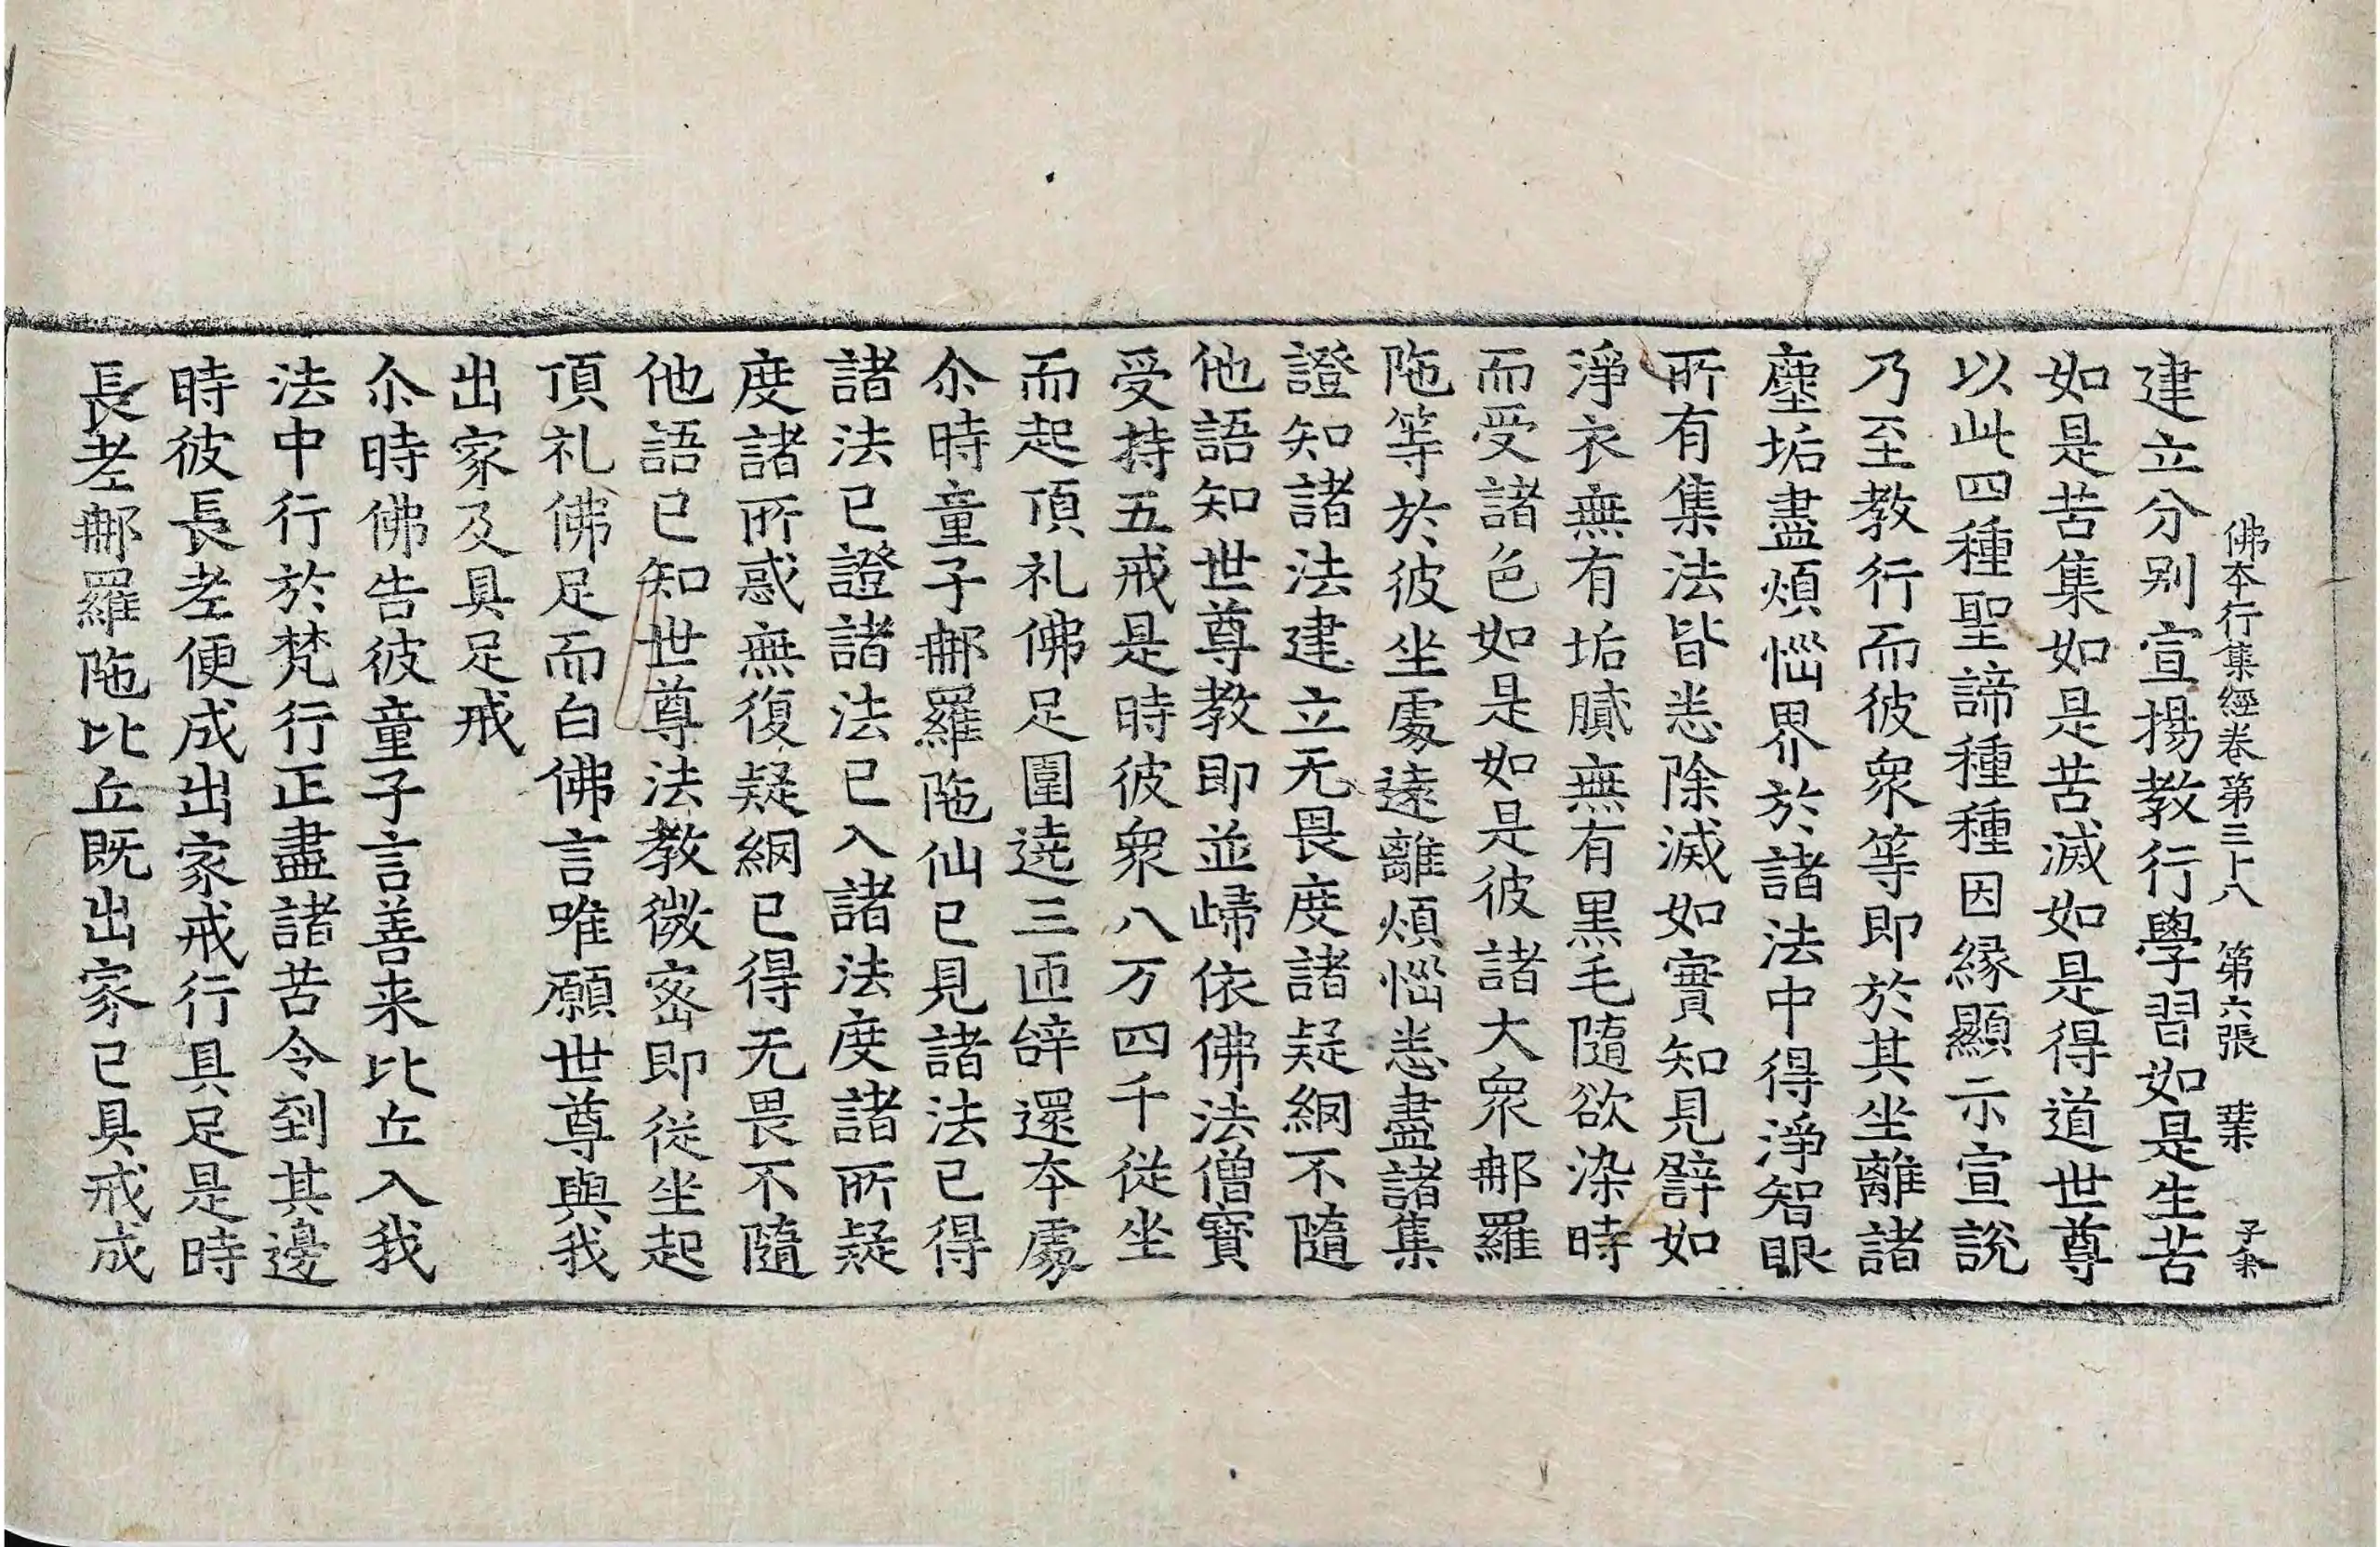 佛本行集經卷第三十八　第六張　葉
建立分別宣揚教行學習如是生苦
如是苦集如是苦滅如是得道世尊
以此四種聖諦種種因緣顯示宣說
乃至教行而彼衆等即於其坐離諸
塵垢盡煩惱界於諸法中得淨智眼
所有集法皆悉除滅如實知見譬如
淨衣無有垢膩無有黑毛隨欲染時
而受諸色如是如是彼諸大衆那羅
陁等於彼坐處遠離煩惱悉盡諸集
證知諸法建立无畏度諸疑網不隨
他語知世尊教即並歸依佛法僧寶
受持五戒是時彼衆八万四千從坐
而起頂礼佛足圍遶三匝辝還本處
尒時童子那羅陁仙已見諸法已得
諸法已證諸法已入諸法度諸所疑
度諸所惑無復疑網已得无畏不隨
他語已知世尊法教微密即從坐起
頂礼佛足而白佛言唯願世尊與我
出家及具足戒
尒時佛告彼童子言善来比丘入我
法中行於梵行正盡諸苦令到其邊
時彼長老便成出家戒行具足是時
長老那羅陁比丘既出家已具戒成